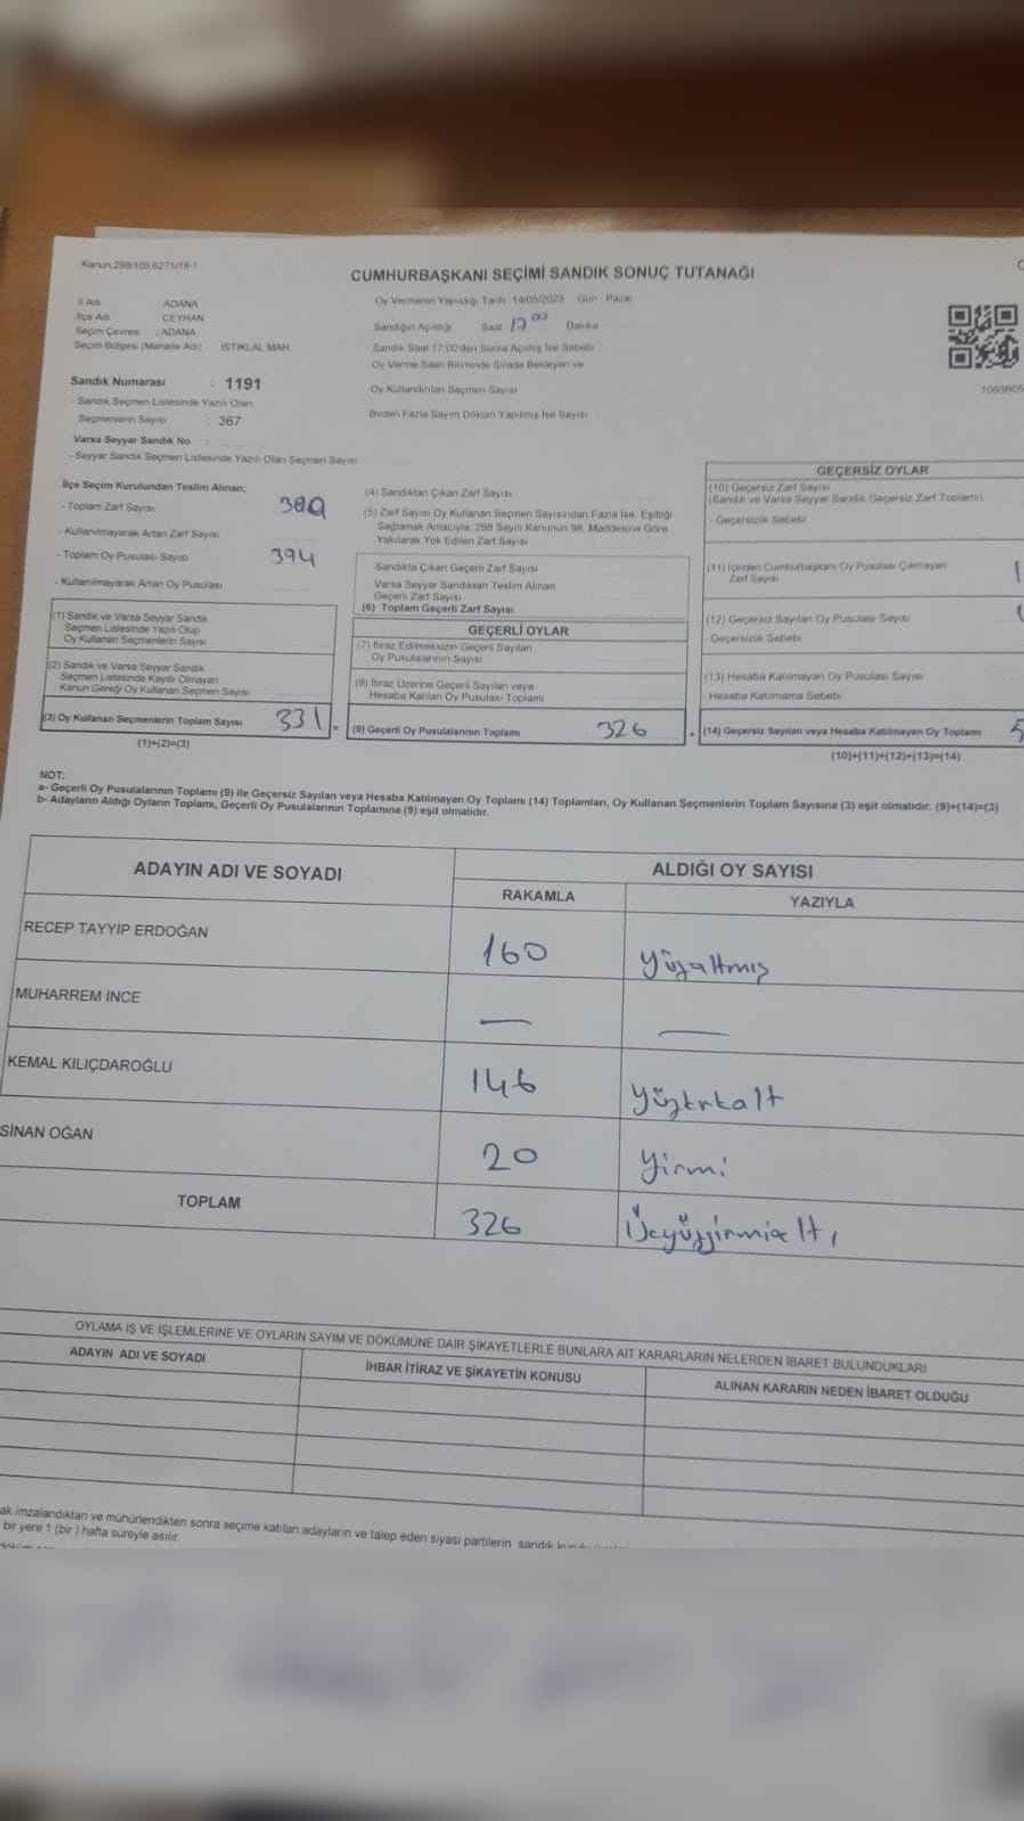 Kanun:298/105,6271/19-1
CUMHURBAŞKANI SEÇİMİ SANDIK SONUÇ TUTANAĞI
İl Adı : ADANA
İlçe Adı : CEYHAN
Seçim Çevresi : ADANA
Seçim Bölgesi (Mahalle Adı) : İSTİKLAL MAH.
Sandık Numarası : 1191
- Sandık Seçmen Listesinde Yazılı Olan
Seçmenlerin Sayısı : 367
Varsa Seyyar Sandık No
- Seyyar Sandık Seçmen Listesinde Yazılı Olan Seçmen Sayısı
Oy Vermenin Yapıldığı Tarih: 14/05/2023 Gün : Pazar
Sandığın Açıldığı Saat 17 00 Dakika
Sandık Saat 17:00'den Sonra Açılmış İse Sebebi
Oy Verme Saati Bitiminde Sırada Bekleyen ve
Oy Kullandırılan Seçmen Sayısı
Birden Fazla Sayım Döküm Yapılmış İse Sayısı
İlçe Seçim Kurulundan Teslim Alınan;
- Toplam Zarf Sayısı 380
- Kullanılmayarak Artan Zarf Sayısı
- Toplam Oy Pusulası Sayısı 394
- Kullanılmayarak Artan Oy Pusulası
(1) Sandık ve Varsa Seyyar Sandık
Seçmen Listesinde Yazılı Olup
Oy Kullanan Seçmenlerin Sayısı
(2) Sandık ve Varsa Seyyar Sandık
Seçmen Listesinde Kayıtlı Olmayan
Kanun Gereği Oy Kullanan Seçmen Sayısı
(3) Oy Kullanan Seçmenlerin Toplam Sayısı 331
(1)+(2)=(3)
(4) Sandıktan Çıkan Zarf Sayısı
(5) Zarf Sayısı Oy Kullanan Seçmen Sayısından Fazla İse, Eşitliği
Sağlamak Amacıyla, 298 Sayılı Kanunun 98. Maddesine Göre
Yakılarak Yok Edilen Zarf Sayısı
Sandıkta Çıkan Geçerli Zarf Sayısı
Varsa Seyyar Sandıktan Teslim Alınan
Geçerli Zarf Sayısı
(6) Toplam Geçerli Zarf Sayısı
GEÇERLİ OYLAR
(7) İtiraz Edilmeksizin Geçerli Sayılan
Oy Pusulalarının Sayısı
(8) İtiraz Üzerine Geçerli Sayılan veya
Hesaba Katılan Oy Pusulası Toplamı
(9) Geçerli Oy Pusulalarının Toplamı 326
GEÇERSİZ OYLAR
(10) Geçersiz Zarf Sayısı
(Sandık ve Varsa Seyyar Sandık Geçersiz Zarf Toplamı)
Geçersizlik Sebebi
(11) İçinden Cumhurbaşkanı Oy Pusulası Çıkmayan
Zarf Sayısı
(12) Geçersiz Sayılan Oy Pusulası Sayısı
Geçersizlik Sebebi
(13) Hesaba Katılmayan Oy Pusulası Sayısı
Hesaba Katılmama Sebebi
(14) Geçersiz Sayılan veya Hesaba Katılmayan Oy Toplamı 5
(10)+(11)+(12)+(13)=(14)
NOT:
a- Geçerli Oy Pusulalarının Toplamı (9) ile Geçersiz Sayılan veya Hesaba Katılmayan Oy Toplamı (14) Toplamları, Oy Kullanan Seçmenlerin Toplam Sayısına (3) eşit olmalıdır. (9)+(14)=(3)
b- Adayların Aldığı Oyların Toplamı, Geçerli Oy Pusulalarının Toplamına (9) eşit olmalıdır.
ADAYIN ADI VE SOYADI
ALDIĞI OY SAYISI
RAKAMLA YAZIYLA
RECEP TAYYİP ERDOĞAN 160 Yüzaltmış
MUHARREM İNCE — —
KEMAL KILIÇDAROĞLU 146 Yüzkrkalt
SİNAN OĞAN 20 Yirmi
TOPLAM 326 Üçyüzyirmialtı
OYLAMA İŞ VE İŞLEMLERİNE VE OYLARIN SAYIM VE DÖKÜMÜNE DAİR ŞİKAYETLERLE BUNLARA AİT KARARLARIN NELERDEN İBARET BULUNDUKLARI
ADAYIN ADI VE SOYADI İHBAR İTİRAZ VE ŞİKAYETİN KONUSU ALINAN KARARIN NEDEN İBARET OLDUĞU
ak imzalandıktan ve mühürlendikten sonra seçime katılan adayların ve talep eden siyasi partilerin sandık
bir yere 1 (bir) hafta süreyle asılır.